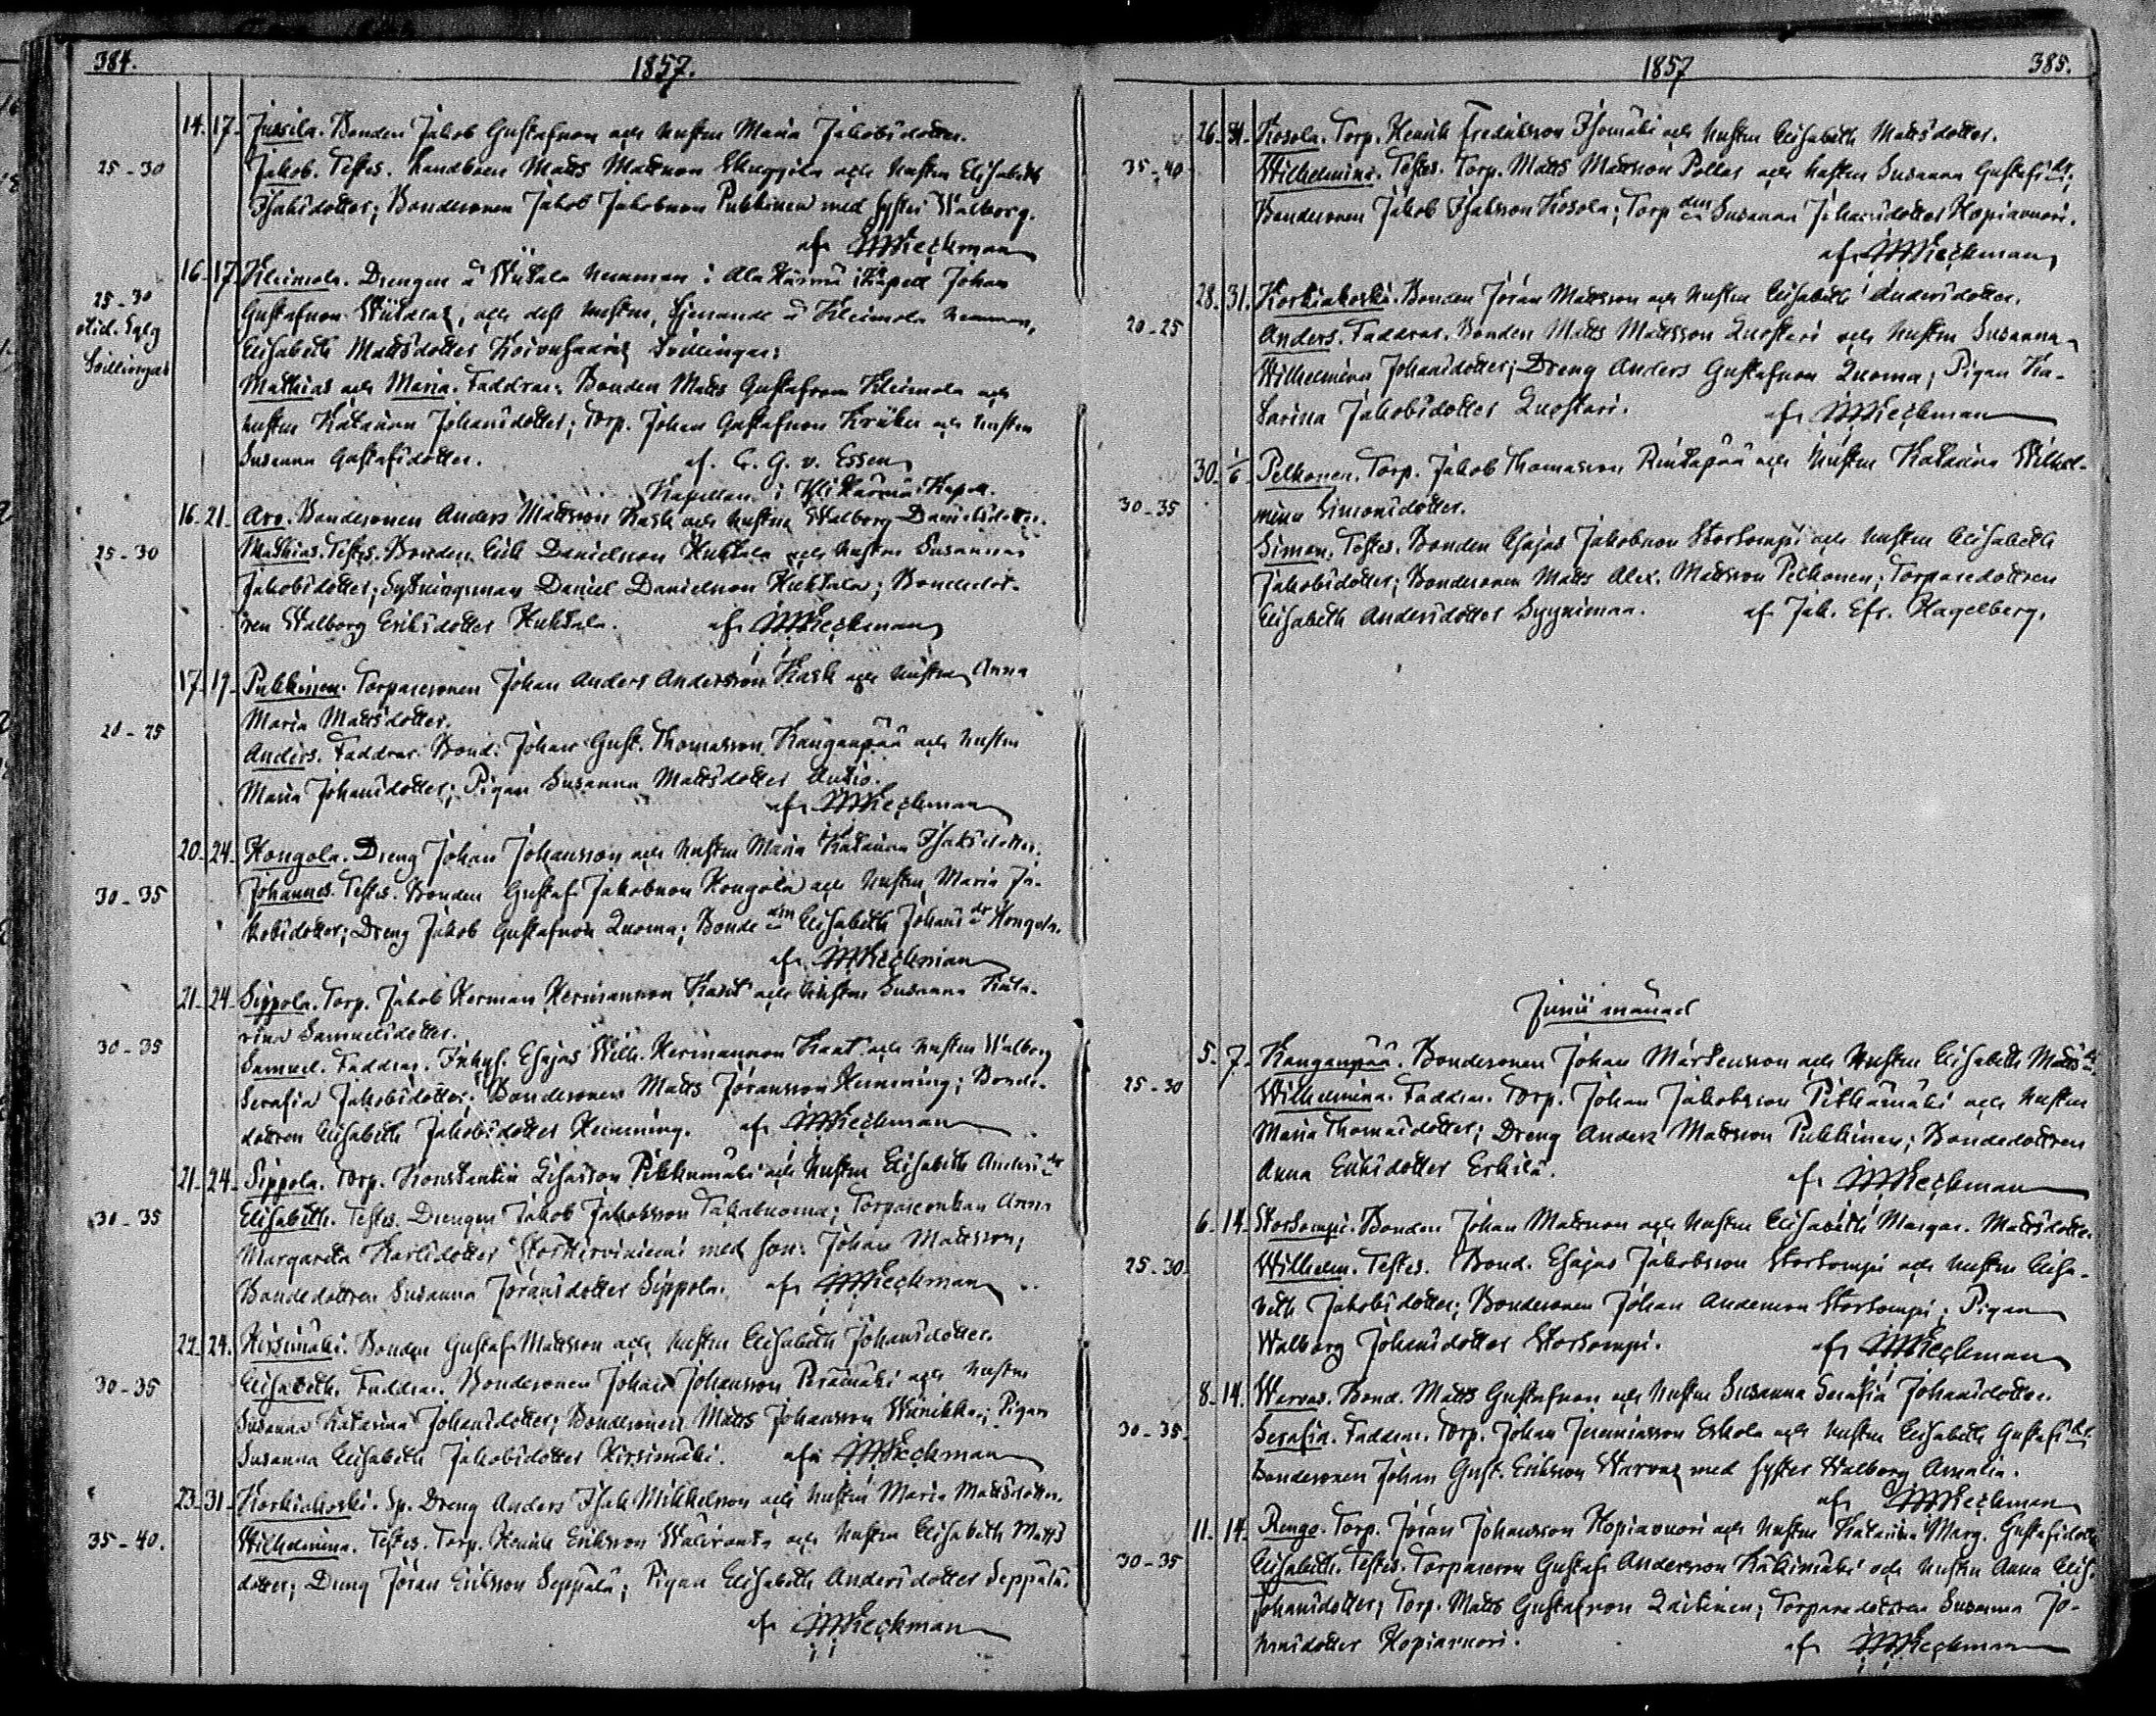 384.
1857.
14. 17. Jussila. Bonden Jakob Gustafsson och hustru Maria Jakobsdotter.
25-30 Jakob. Testes. Landboen Matts Mattsson och hustru Elisabeth
Isaksdotter; Bondesonen Jakob Jakobsson Pukkinen med syster Walborg.
af
16. 17. Kleimola. Drengen å hemman i Ala Härmä Kapell Johan
25-30 Gustafsson och dess hustru, tjenande å Kleimola hemman,
Elisabeth Mattsdotter Tvillingar:
Tvillingar
Mathias och Maria. Faddrar. Bonden Matts Gustafsson Kleimola och
hustru Katarina Johansdotter; Torp. Johan Gustafsson och hustru
Susanna Gustafsdotter. af C. G. v. Essen
Kapellan i Yli Härmä Kapell.
16. 21. Aro. Bondesonen Anders Mattsson Kask och hustru Walborg Danielsdotter.
25-30 Mathias. Testes. Bonden Erik Danielsson Huhtala och hustru Susanna
Jakobsdotter; Sytningsman Daniel Danielsson Huhtala; Bondedot-
ren Walborg Eriksdotter Huhtala. af
17. 19. Pukkinen. Torparesonen Johan Anders Andersson Kask och hustru Anna
Maria Mattsdotter.
20-25 Anders. Faddrar. Bond. Johan Gust. Thomasson Kangaspää och hustru
Maria Johansdotter; Pigan Susanna Mattsdotter Autio.
af
20. 24. Hongola. Dreng Johan Johansson och hustru Maria Katarina Isaksdotter.
30-35 Johannes. Testes. Bonden Gustaf Jakobsson Hongola och hustru Maria Ja-
kobsdotter; Dreng Jakob Gustafsson Luoma; Bonde drn Elisabeth Johans dr Hongola.
af
21. 24. Sippola. Torp. Jakob Herman Hermansson och hustru Susanna Kata-
rina Samuelsdotter.
30-35 Samuel. Faddrar. Inhys. Esajas Wilh. Hermansson och hustru Walborg
Serafia Jakobsdotter; Bondesonen Matts Jöransson Hemming; Bonde-
dottren Elisabeth Jakobsdotter Hemming. af
21. 24. Sippola. Torp. Konstantin Pitkämäki och hustru Elisabeth Anders dr
30-35 Elisabeth. Testes. Drengen Jakob Jakobsson Takaluoma; Torpareenkan Anna
Margareta Karlsdotter med son Johan Mattsson;
Bondedottren Susanna Jöransdotter Sippola. af
22. 24. Hirsimäki. Bonden Gustaf Mattsson och hustru Elisabeth Johansdotter.
30-35 Elisabeth. Faddrar. Bondesonen Johan Johansson Perämäki och hustru
Susanna Katarina Johansdotter; Bondesonen Matts Johansson; Pigan
Susanna Elisabeth Jakobsdotter Hirsimäki. af
23. 31. Korkiakoski. Sp. Dreng Anders Isak Mikkelsson och hustru Maria Mattsdotter.
35-40. Wilhelmina. Testes. Torp. Henrik Eriksson och hustru Elisabeth Matts
dotter; Dreng Jöran Eriksson Seppälä; Pigan Elisabeth Andersdotter Seppälä.
af
1857
385.
26. 31. Kosola. Torp. Henrik Fredriksson Isomäki och hustru Elisabeth Mattsdotter.
35-40 Wilhelmina. Testes. Torp. Matts Mattsson Pollas och hustru Susanna Gustafs dr.;
Bondesonen Jakob Isaksson Kosola; Torp drn Susanna Johansdotter Hopiavuori.
af
28. 31. Korkiakoski. Bonden Jöran Mattsson och hustru Elisabeth Andersdotter.
20-25 Anders. Faddrar. Bonden Matts Mattsson Luostari och hustru Susanna
Wilhelmina Johansdotter; Dreng Anders Gustafsson Luoma; Pigan Ka-
tarina Jakobsdotter Luostari. af
30. 1/6 Pelkonen. Torp. Jakob Thomasson Rintapää och hustru Katarina Wilhel-
30-35 mina Simonsdotter.
Simon. Testes. Bonden Esajas Jakobsson Stortompi och hustru Elisabeth
Jakobsdotter; Bondesonen Matts Alex. Mattsson Pelkonen; Torparedottren
Elisabeth Andersdotter af Jak. Efr. Hagelberg.
Junii månad
5. 7. Kangaspää. Bondesonen Johan Mårtensson och hustru Elisabeth Matts dr
25-30 Wilhelmina. Faddrar. Torp. Johan Jakobsson Pitkämäki och hustru
Maria Thomasdotter; Dreng Anders Mattsson Pukkinen; Bondedottren
Anna Eriksdotter Erkilä. af
6. 14. Stortompi. Bonden Johan Mattsson och hustru Elisabeth Margar. Mattsdotter.
25-30 Wilhelm. Testes. Bond. Esajas Jakobsson Stortompi och hustru Elisa-
beth Jakobsdotter; Bondesonen Johan Andersson Stortompi; Pigan
Walborg Johansdotter Stortompi. af
8. 14. Warvas. Bond. Matts Gustafsson och hustru Susanna Serafia Johansdotter.
30-35 Serafia. Faddrar. Torp. Johan Jeremiasson Eskola och hustru Elisabeth Gustafs dr.
Bondesonen Johan Gust. Eriksson Warvas med syster Walborg Amalia.
af
11. 14. Rengo. Torp. Jöran Johansson Hopiavuori och hustru Katarina Marg. Gustafsdotter
30-35 Elisabeth. Testes. Torpareson Gustaf Andersson och hustru Anna Elis.
Johansdotter; Torp. Matts Gustafsson Laitinen; Torparedottren Susanna Jo-
hansdotter Hopiavuori. af